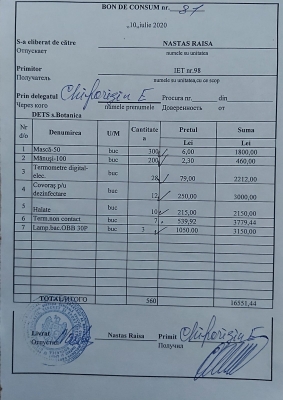 BON DE CONSUM nr. 87
„10„iulie 2020
S-a eliberat de către NASTAS RAISA
Отпускает numele su unitatea
Primitor IET nr.98
Получатель numele su unitatea,cu ce scop
Prin delegatul Chiporișiu E Procura nr. din
Через кого numele prenumele Доверенность от
DETS s.Botanica
Nr d/o Denumirea U/M Cantitatea Pretul Suma
Lei Lei
1 Mască-50 buc 300 6,00 1800.00
2 Mănuși-100 buc 200 2,30 460.00
3 Termometre digital-elec. buc 28 79,00 2212.00
4 Covoraș p/u dezinfectare buc 12 250,00 3000.00
5 Halate buc 10 215,00 2150.00
6 Term.non contact buc 7 539,92 3779,44
7 Lamp.bac.OBB 30P buc 3 1050.00 3150.00
TOTAL/ИТОГО 560 16551,44
Livrat Nastas Raisa Primit Chiporișiu E
Отпустил Получил